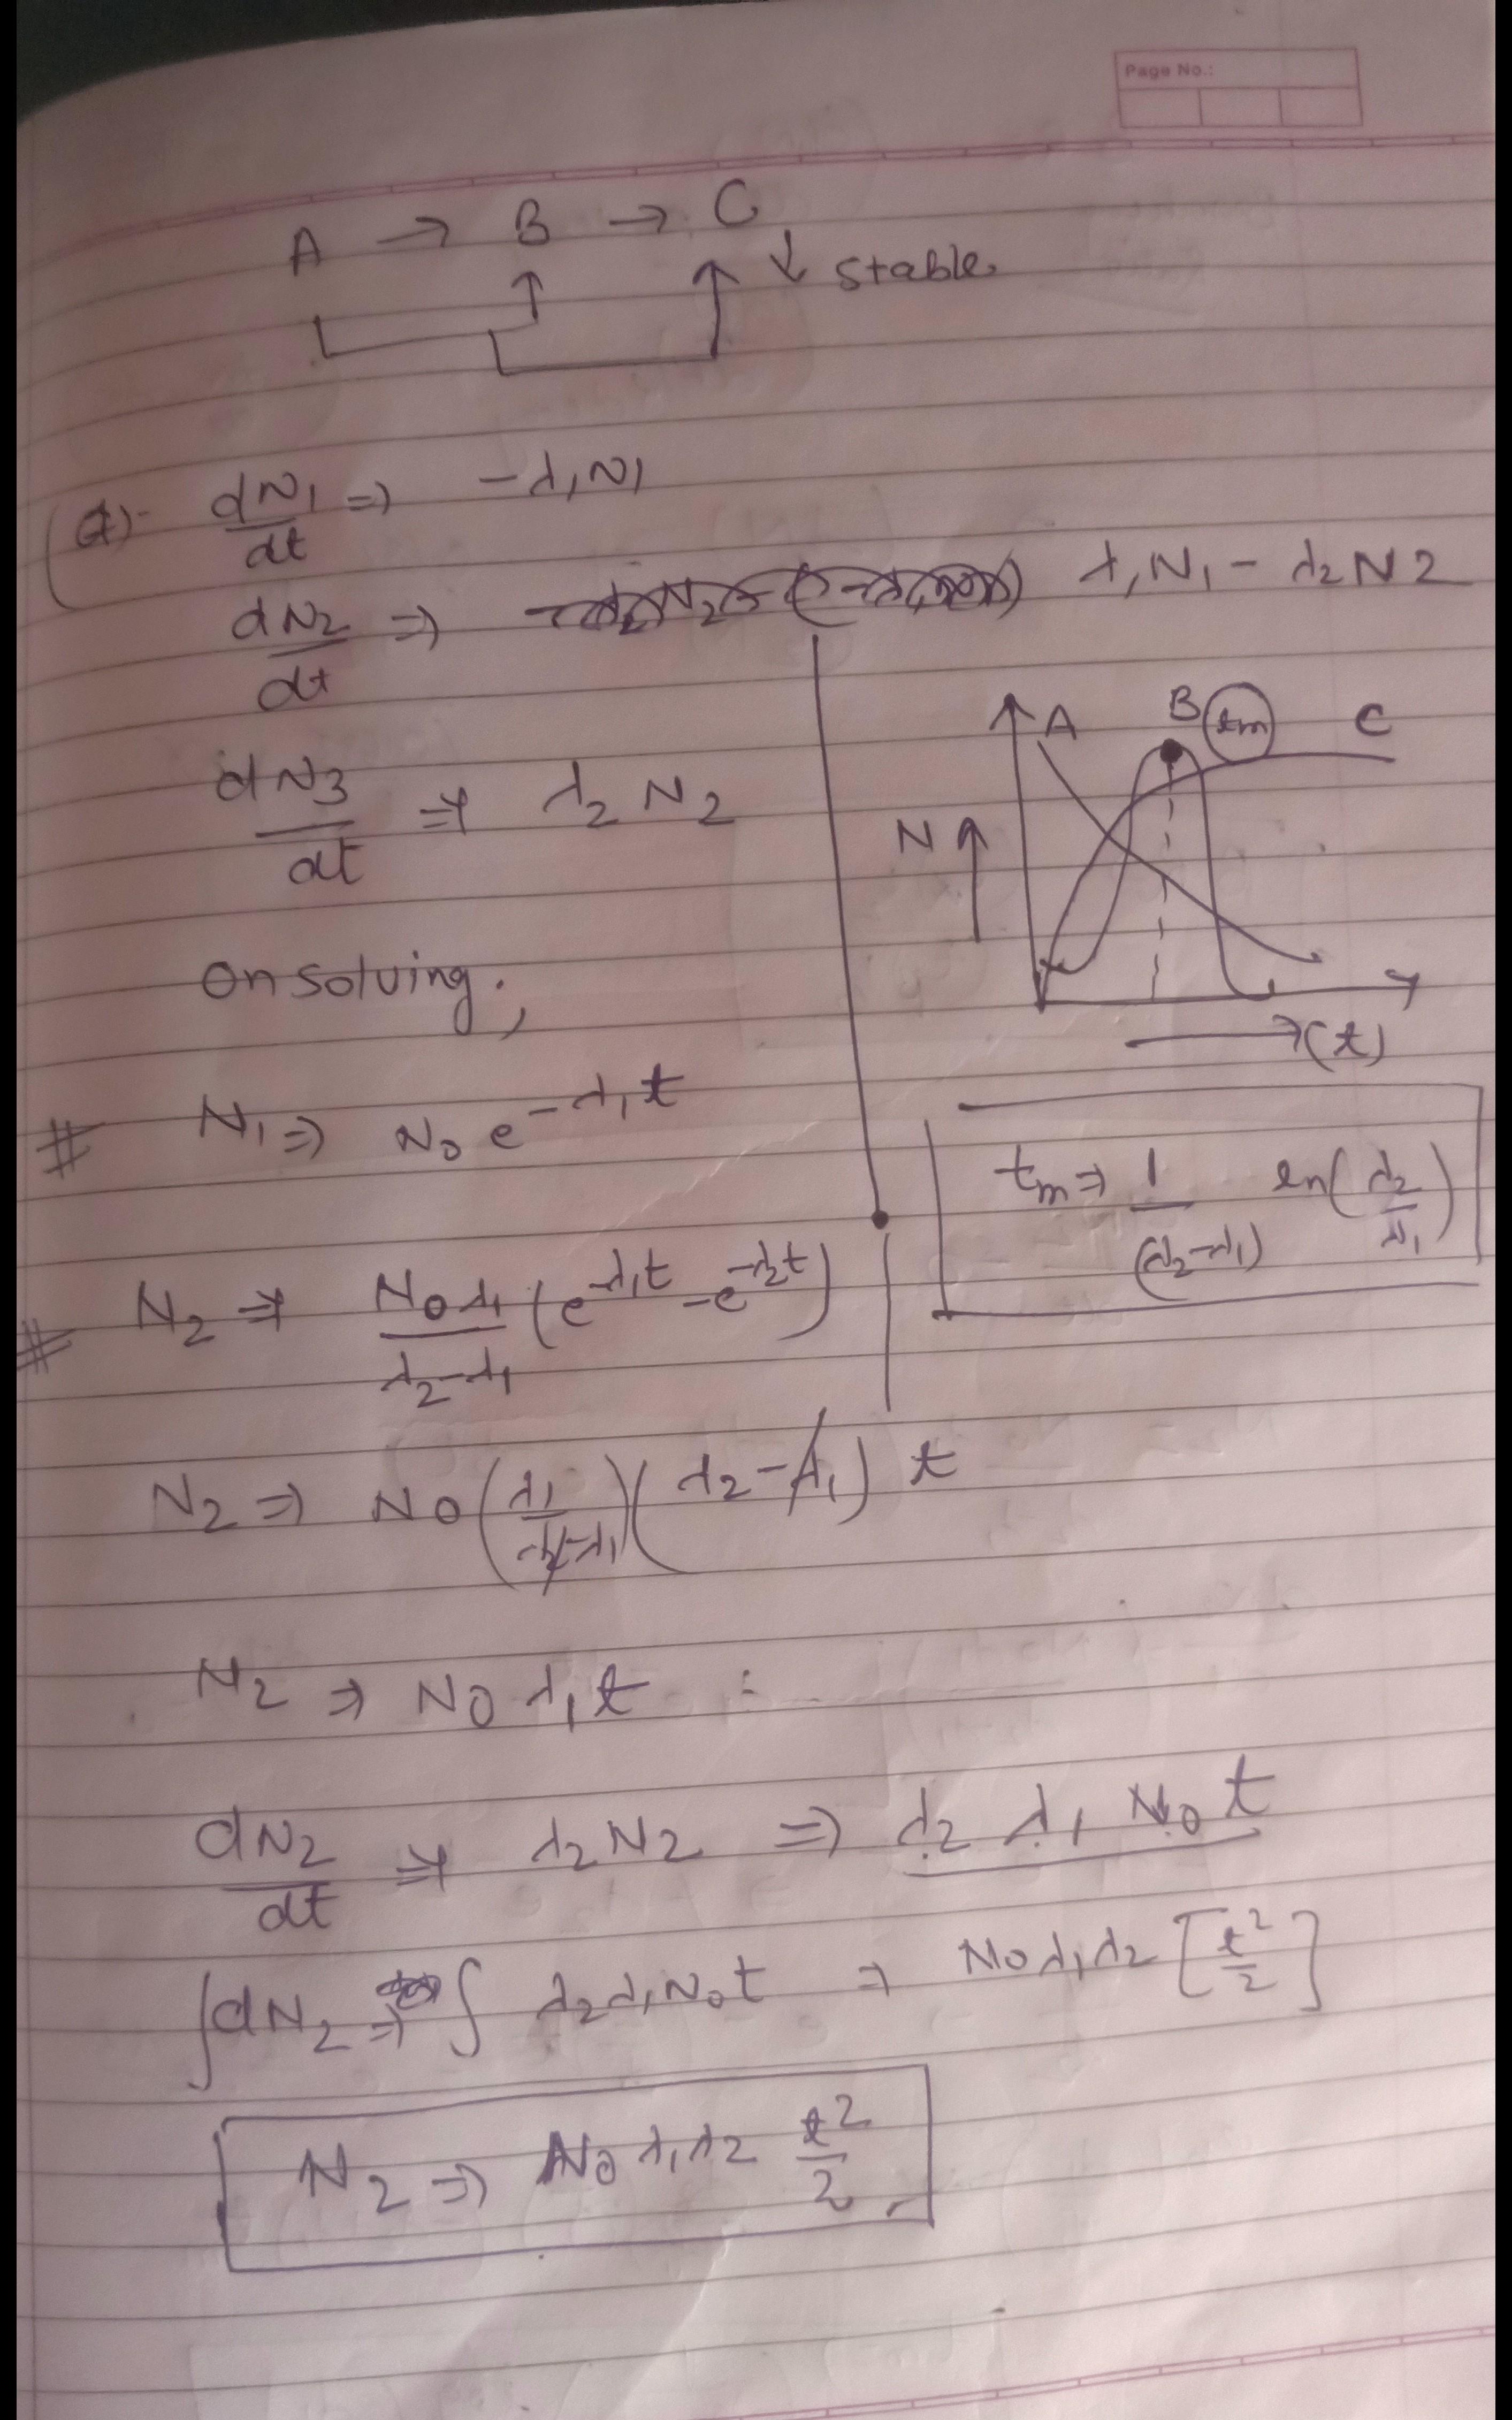 Page No.:
A → B → C
↓ stable
(Q)- dN1/dt ⇒ -λ1N1
dN2/dt ⇒ λ1N1 - λ2N2
dN3/dt ⇒ λ2N2
A B (tm) C
N ↑
→ (t)
on solving;
# N1 ⇒ N0 e^-λ1t
tm ⇒ 1/(λ2-λ1) ln(λ2/λ1)
# N2 ⇒ N0λ1/λ2-λ1 (e^-λ1t - e^-λ2t)
N2 ⇒ N0 (λ1/λ2-λ1)(λ2-λ1) t
N2 ⇒ N0 λ1t
dN2/dt ⇒ λ2N2 ⇒ λ2 λ1 N0 t
∫dN2 ⇒ ∫ λ2λ1N0t ⇒ N0λ1λ2 [t²/2]
N2 ⇒ N0 λ1λ2 t²/2